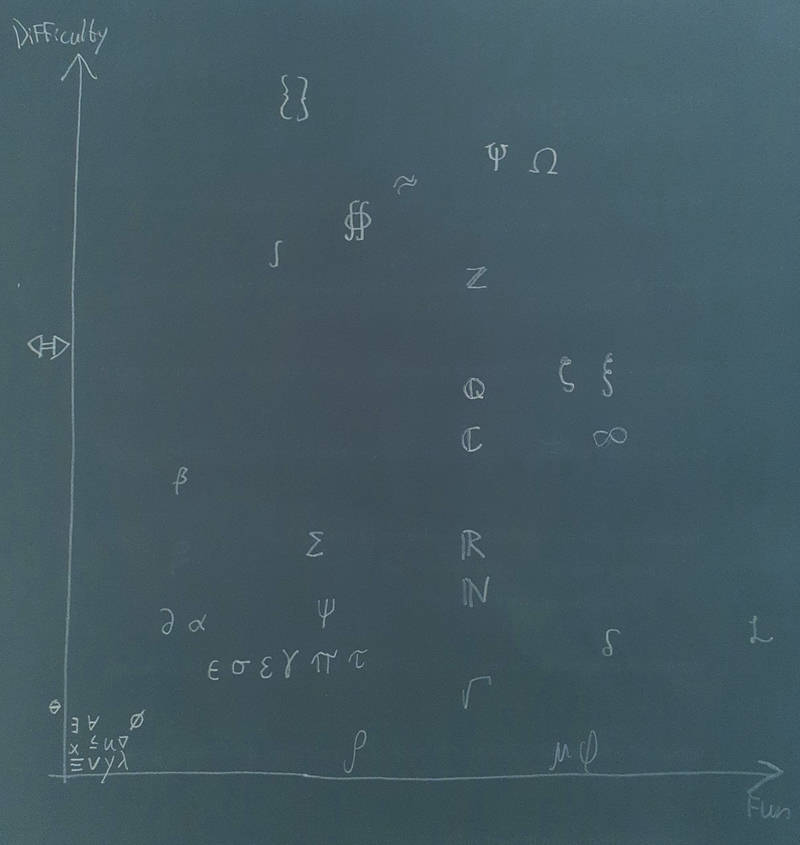 Difficulty
{}
Ψ Ω
≈
∯
∫
ℤ
⇔
ℚ ζ ξ
ℂ ∞
β
Σ ℝ
ℕ
∂ α ψ
δ L
ϵ σ ε γ π τ
√
θ
∃ ∀ ∅
× ∩ ≤ ∇
≡ ∨ y λ
ρ μ φ
Fun